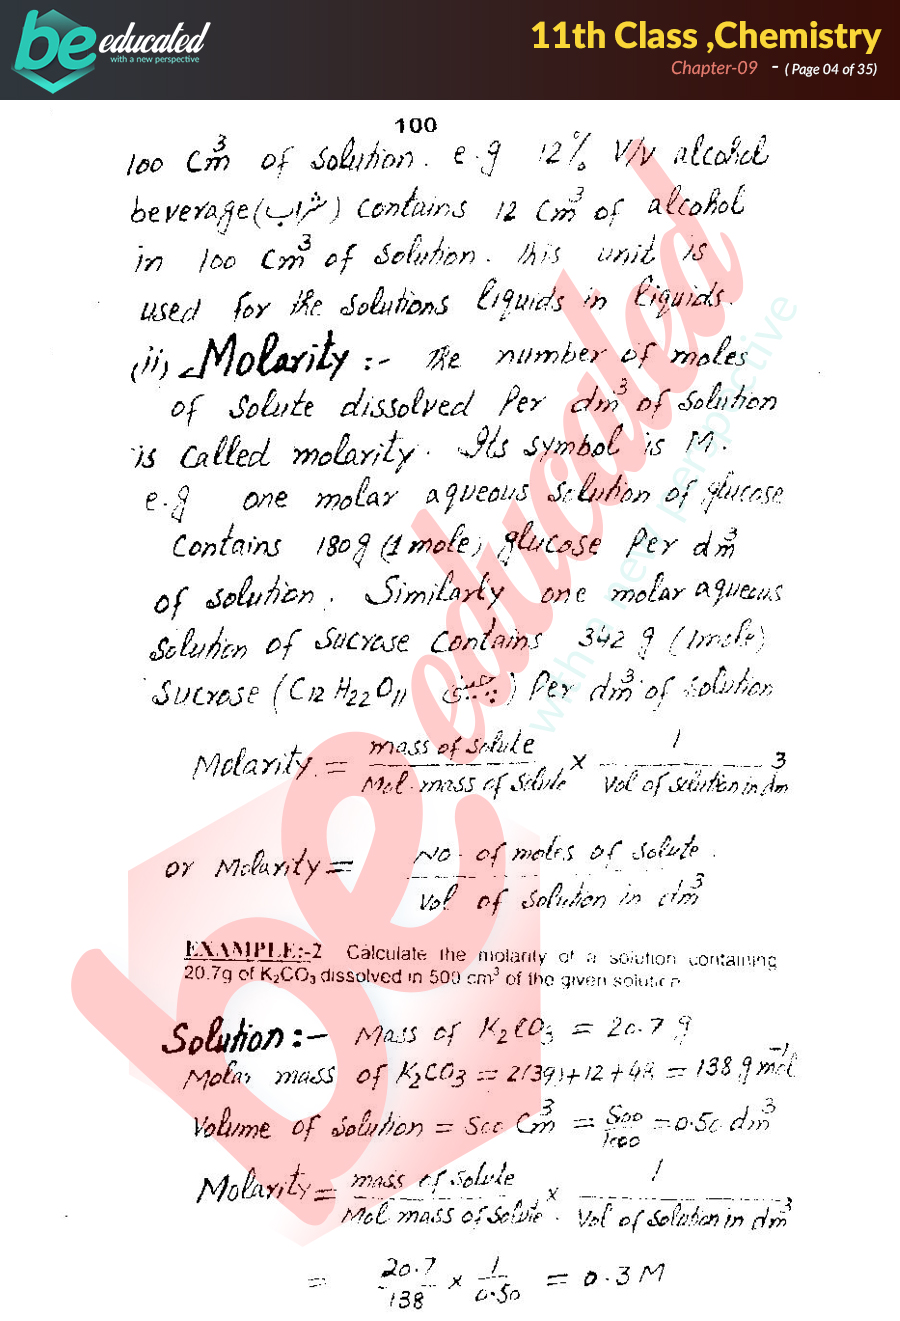 be educated
with a new perspective
11th Class ,Chemistry
Chapter-09 - ( Page 04 of 35)
100
100 Cm³ of solution. e.g 12% V/v alcohol
beverage (شراب) contains 12 Cm³ of alcohol
in 100 Cm³ of solution. This unit is
used for the solutions liquids in liquids.
(ii) Molarity :- The number of moles
of solute dissolved Per dm³ of solution
is called molarity. Its symbol is M.
e.g one molar aqueous solution of glucose
Contains 180g (1 mole) glucose Per dm³
of solution. Similarly one molar aqueous
Solution of Sucrose contains 342 g (1mole)
Sucrose (C12 H22 O11 ) Per dm³ of solution
Molarity = mass of solute / Mol. mass of solute × 1 / Vol of solution in dm³
or Molarity = No. of moles of solute. / Vol of solution in dm³
EXAMPLE:-2 Calculate the molarity of a solution containing
20.7g of K₂CO₃ dissolved in 500 cm³ of the given solution
Solution :- Mass of K₂CO₃ = 20.7 g
Molar mass of K₂CO₃ = 2(39)+12+48 = 138 g mol⁻¹
Volume of solution = 500 Cm³ = 500/1000 = 0.50 dm³
Molarity = mass of solute / Mol. mass of solute × 1 / Vol of solution in dm³
= 20.7/138 × 1/0.50 = 0.3 M
be educated
with a new perspective